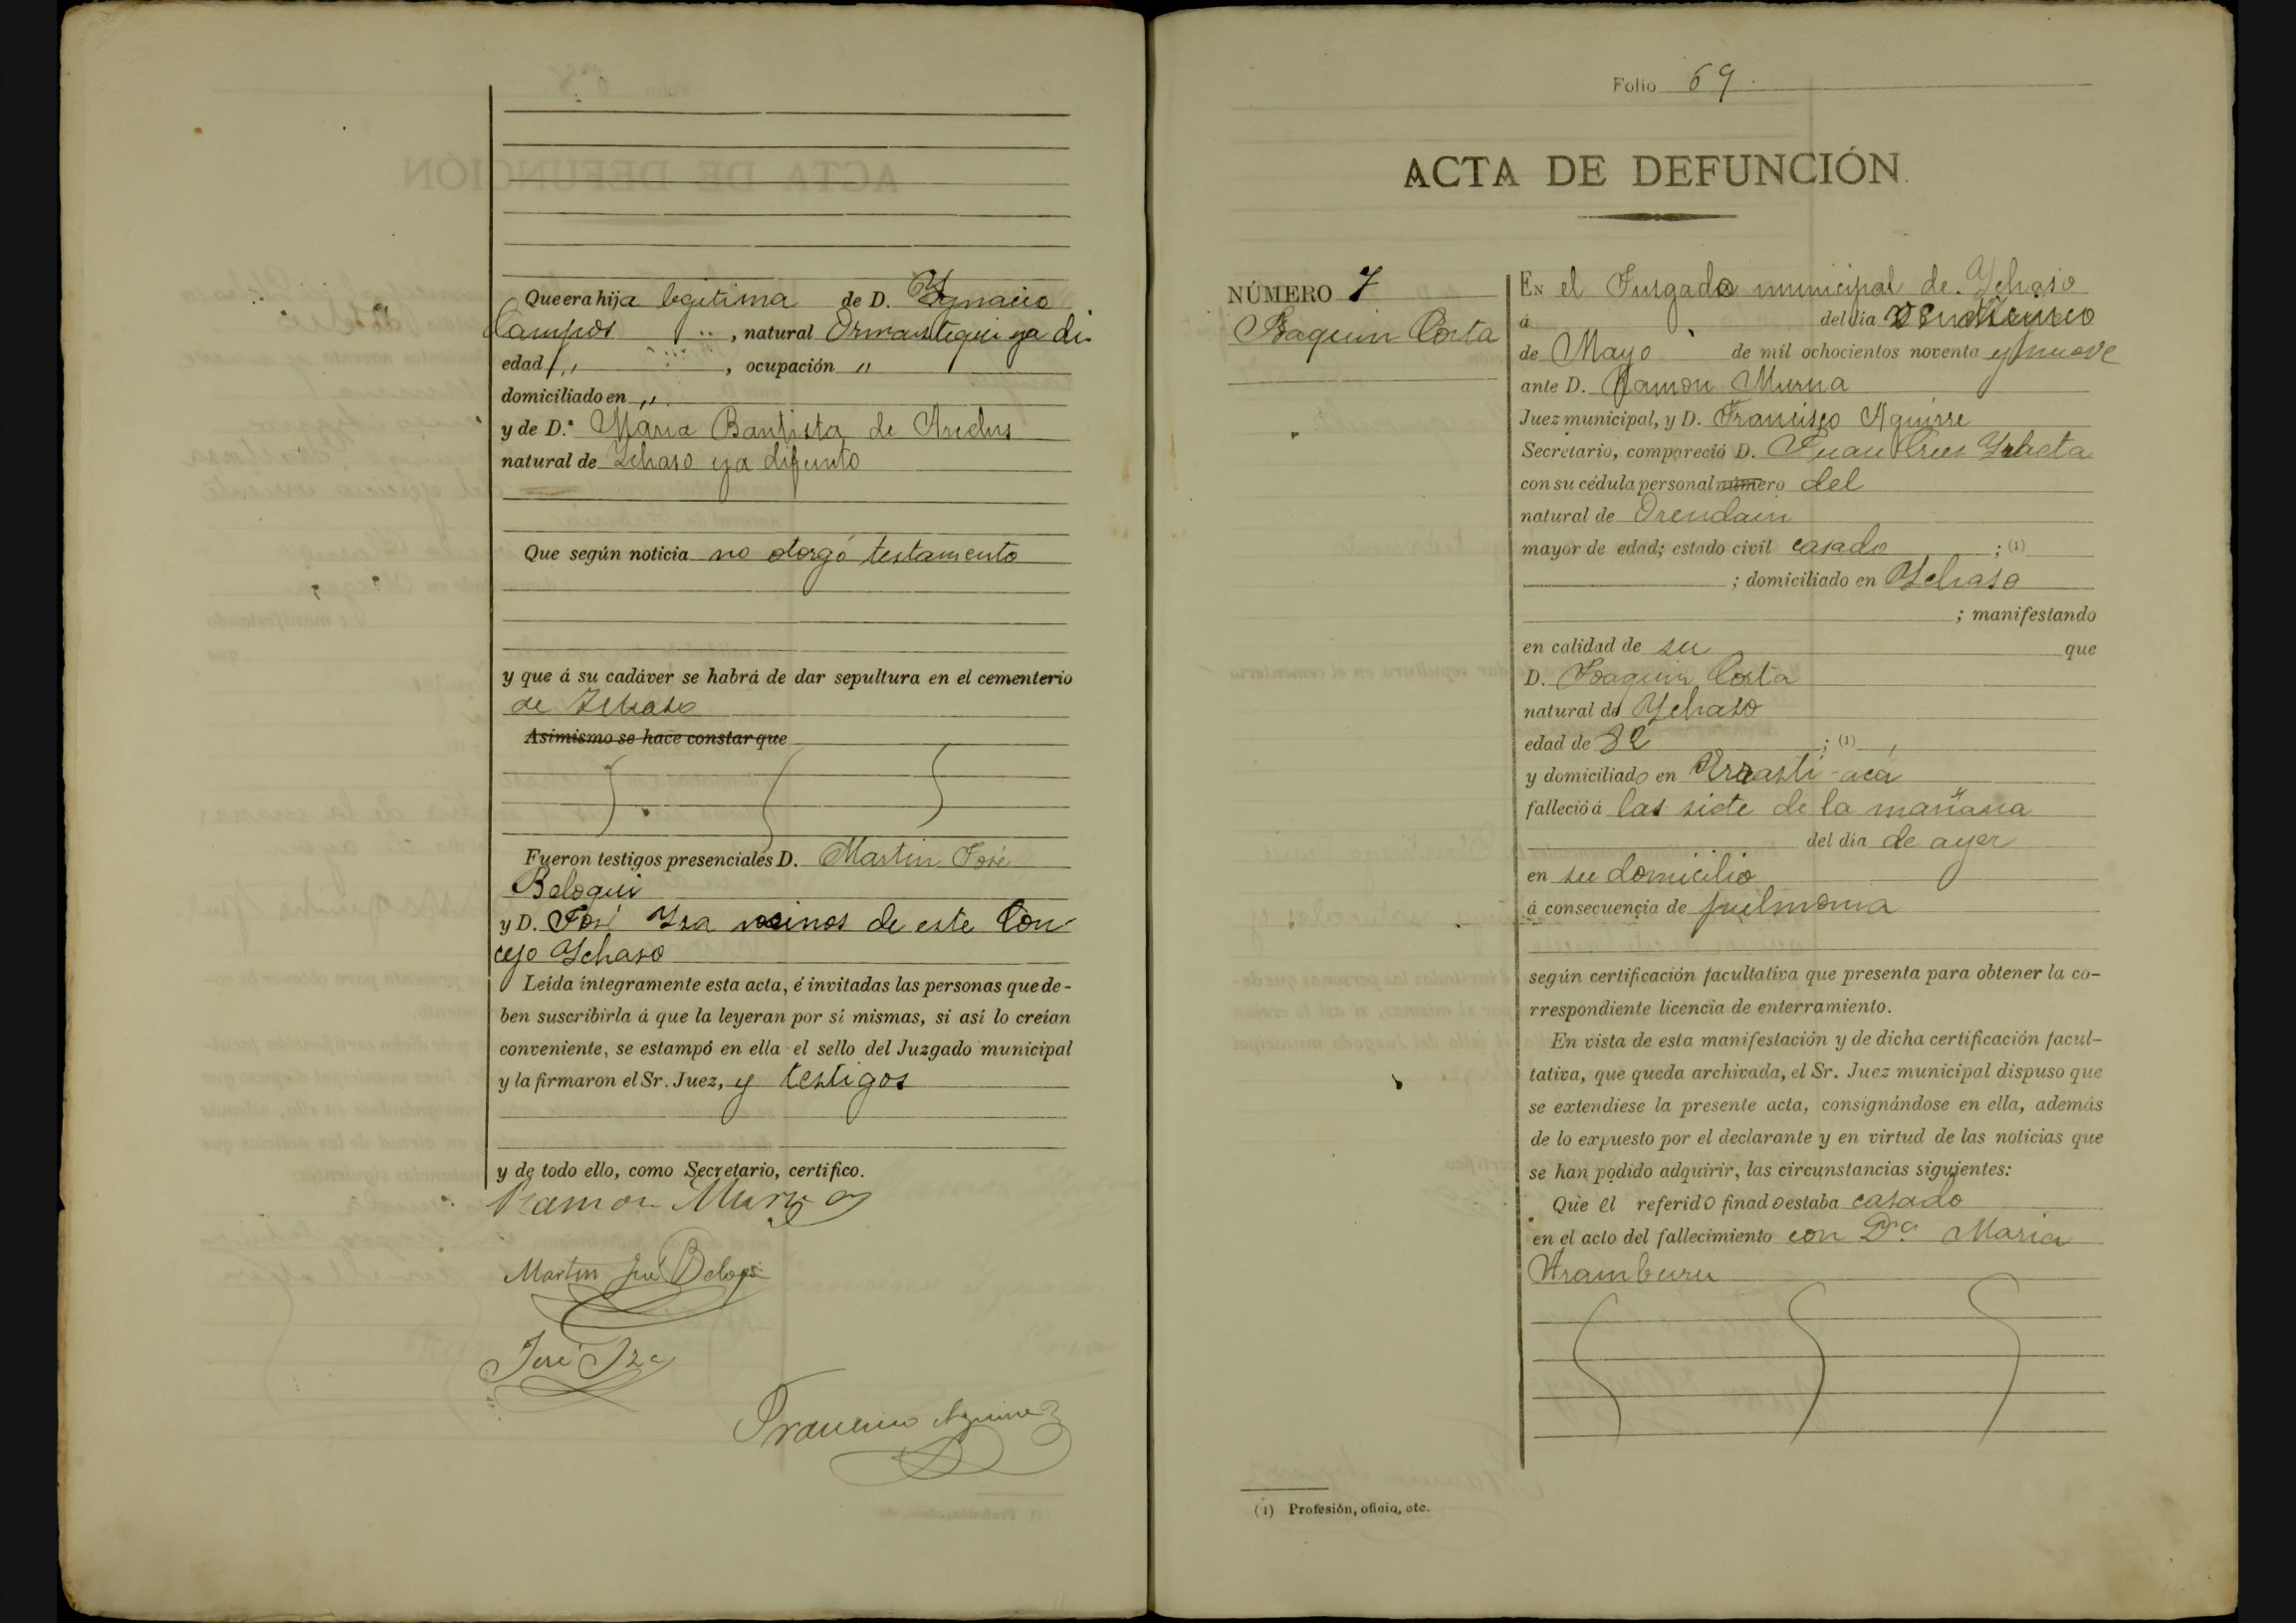 Que era hija legitima de D. Ygnacio
Campos , natural Ormaiztegui ya di
edad " , ocupación "
domiciliado en "
y de D.ª Maria Bautista de
natural de Ychaso ya difunto
Que según noticia no otorgó testamento
y que á su cadáver se habrá de dar sepultura en el cementerio
de Ychaso
Asimismo se hace constar que
Fueron testigos presenciales D. Martin José
Beloqui
y D. José Yza vecinos de este Con-
cejo Ychaso
Leída íntegramente esta acta, é invitadas las personas que de-
ben suscribirla á que la leyeran por sí mismas, si así lo creían
conveniente, se estampó en ella el sello del Juzgado municipal
y la firmaron el Sr. Juez, y testigos
y de todo ello, como Secretario, certifico.
Ramon Murua
Martin José Beloqui
José Iza
Francisco Aguirre
Folio 69.
ACTA DE DEFUNCIÓN.
NÚMERO 7
Joaquin Costa
EN el Jusgado municipal de Ychaso
á del dia
de Mayo de mil ochocientos noventa y nueve
ante D. Ramon Murua
Juez municipal, y D. Francisco Aguirre
Secretario, compareció D. Juan Cruz
con su cédula personal número del
natural de Orendain
mayor de edad; estado civil casado ; (1)
; domiciliado en Ychaso
; manifestando
en calidad de su que
D. Joaquin Costa
natural de Ychaso
edad de 82 ; (1)
y domiciliado en Arrasti-acá
falleció á las siete de la mañana
del dia de ayer
en su domicilio
á consecuencia de pulmonia
según certificación facultativa que presenta para obtener la co-
rrespondiente licencia de enterramiento.
En vista de esta manifestación y de dicha certificación facul-
tativa, que queda archivada, el Sr. Juez municipal dispuso que
se extendiese la presente acta, consignándose en ella, además
de lo expuesto por el declarante y en virtud de las noticias que
se han podido adquirir, las circunstancias siguientes:
Que el referido finado estaba casado
en el acto del fallecimiento con D.ª Maria
Aramburu
(1) Profesión, oficio, etc.